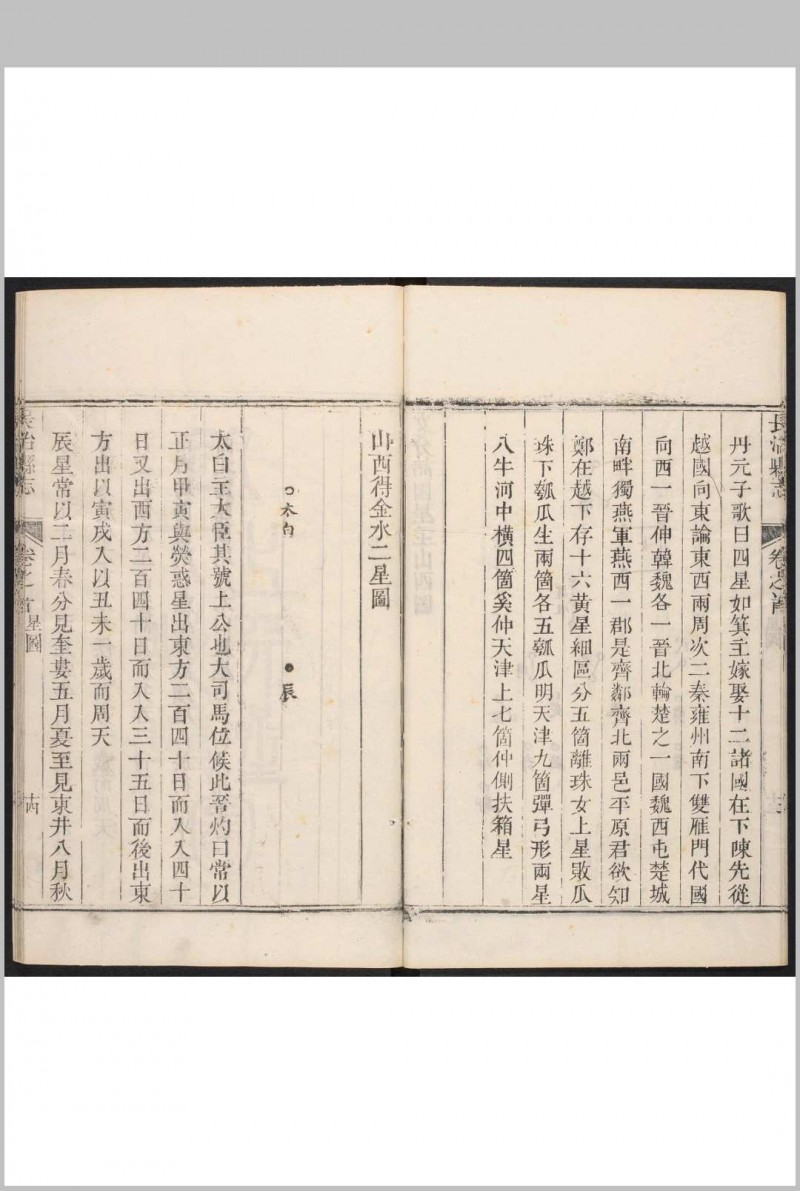 長治縣志
卷之首
丹元子歌曰四星如箕主嫁娶十二諸國在下陳先從
越國向東論東西兩周次二秦雍州南下雙雁門代國
向西一晉伸韓魏各一晉北輪楚之一國魏西屯楚城
南畔獨燕軍燕西一郡是齊鄰齊北兩邑平原君欲知
鄭在越下存十六黃星細區分五箇離珠女上星敗瓜
珠下瓠瓜生兩箇各五瓠瓜明天津九箇彈弓形兩星
入牛河中橫四箇奚仲天津上七箇仲側扶箱星
山西得金水二星圖
太白
辰
太白主大臣其號上公也大司馬位候此晉灼曰常以
正月甲寅與熒惑星出東方二百四十日而入入四十
日又出西方二百四十日而入入三十五日而後出東
方出以寅戌入以丑未一歲而周天
辰星常以二月春分見奎婁五月夏至見東井八月秋
長治縣志
卷之首
星圖